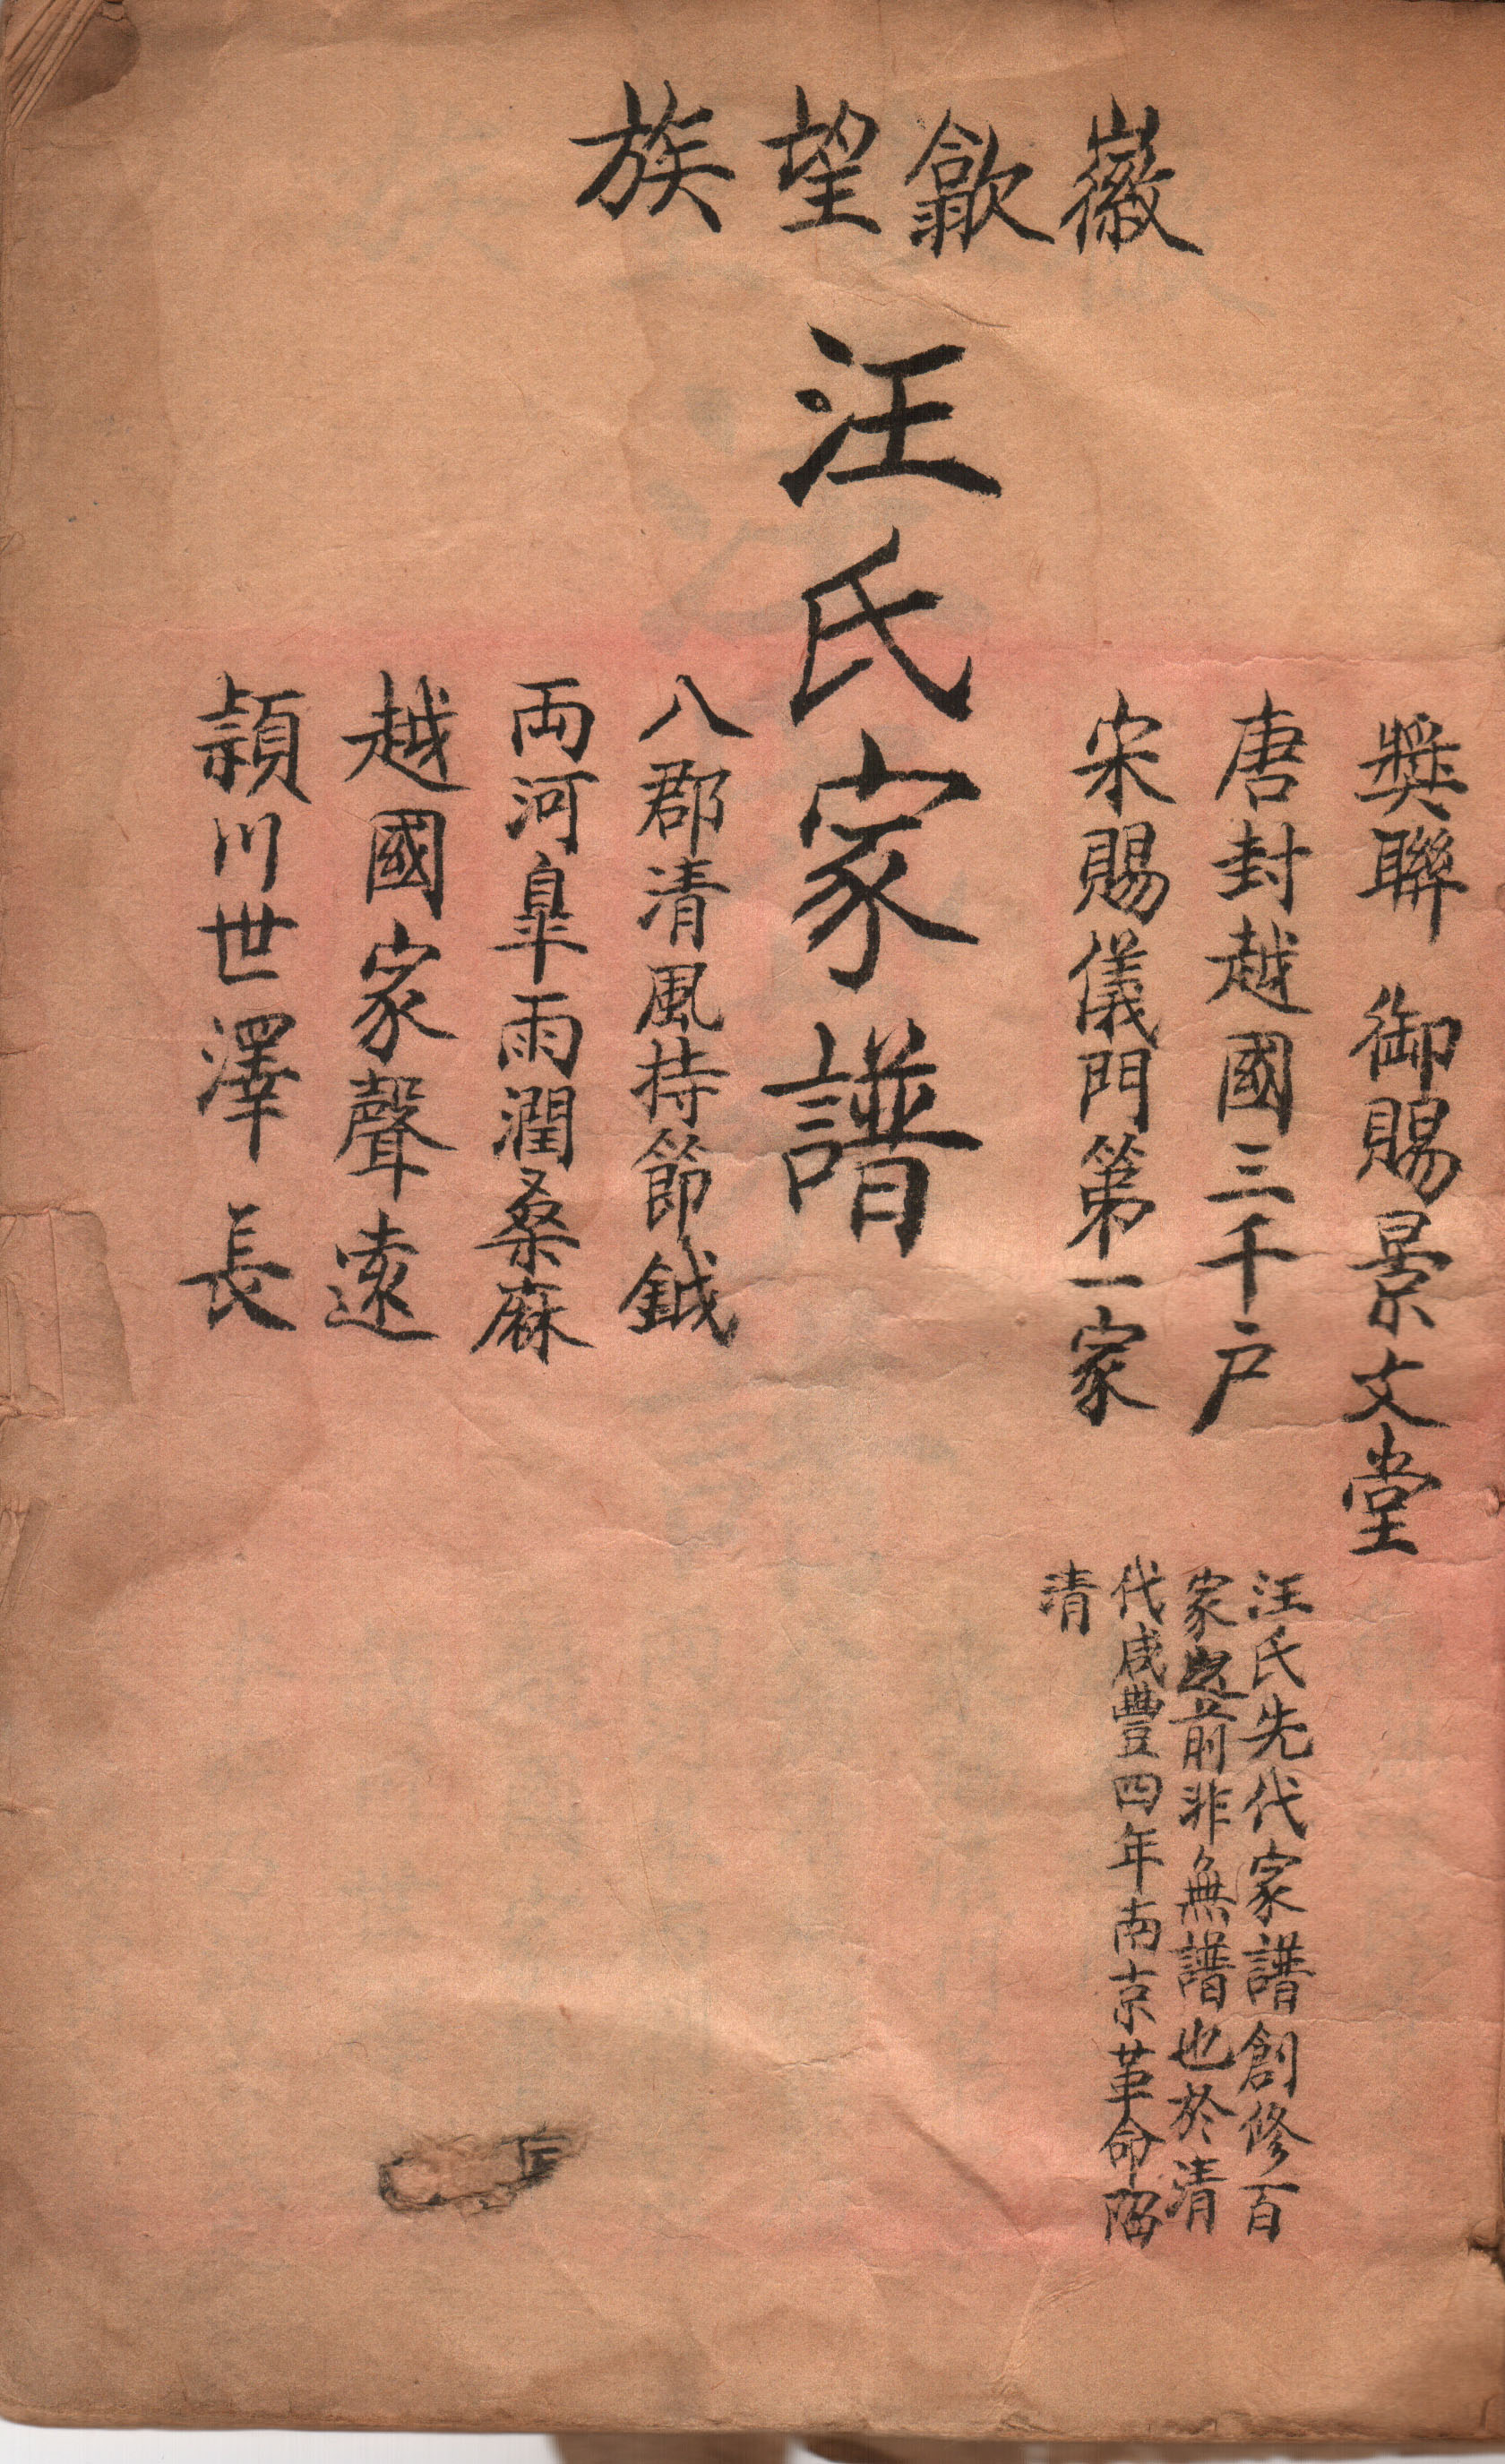 徽歙望族
獎聯 御賜景文堂
唐封越國三千戶
宋賜儀門第一家
汪氏家譜
八郡清風持節鉞
両河皐雨潤桑麻
越國家聲遠
頴川世澤長
汪氏先代家譜創修百
家之前非無譜也於清
代咸豐四年南京革命陷
清